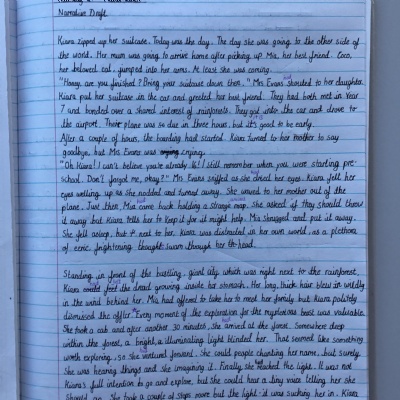 Narrative Draft
Kiara zipped up her suitcase. Today was the day. The day she was going to the other side of
the world. Her mum was going to arrive home after picking up Mia, her best friend. Coco,
her beloved cat, jumped into her arms. At least she was coming.
"Honey, are you finished? Bring your suitcase down then." Mrs Evans shouted to her daughter.
Kiara put her suitcase in the car and greeted her best friend. They had both met in Year
7 and bonded over a shared interest of rainforests. They got into the car and drove to
the airport. Their plane was due in three hours, but it's good to be early.
After a couple of hours, the boarding had started. Kiara turned to her mother to say
goodbye, but Mrs Evans was crying.
"Oh Kiara! I can't believe you're already 16! I still remember when you were starting pre-
school. Don't forget me, okay?" Mrs Evans sniffed as she wiped her eyes. Kiara felt her
eyes welling up as she nodded and turned away. She waved to her mother out of the
plane. Just then, Mia came back holding a strange map. She asked if they should throw
it away but Kiara tells her to keep it for it might help. Mia shrugged and put it away.
She fell asleep, but next to her, Kiara was distracted in her own world, as a plethora
of eerie, frightening thoughts swam through her head.
Standing in front of the bustling, giant city which was right next to the rainforest,
Kiara feel the dread growing inside her stomach. Her long, thick hair blew in wildly
in the wind behind her. Mia had offered to take to meet her family but Kiara politely
dismissed the offer. Every moment of the exploration for the mysterious beast was valuable.
She took a cab and after another 30 minutes, she arrived at the forest. Somewhere deep
within the forest, a bright, illuminating light blinded her. That seemed like something
worth exploring, so she ventured forward. She could people chanting her name, but surely
She was hearing things and she imagining it. Finally, she reached the light. It was not
Kiara's full intention to go and explore, but she could hear a tiny voice telling her she
should go. She took a couple of steps more but the light was sucking her in. Kiara